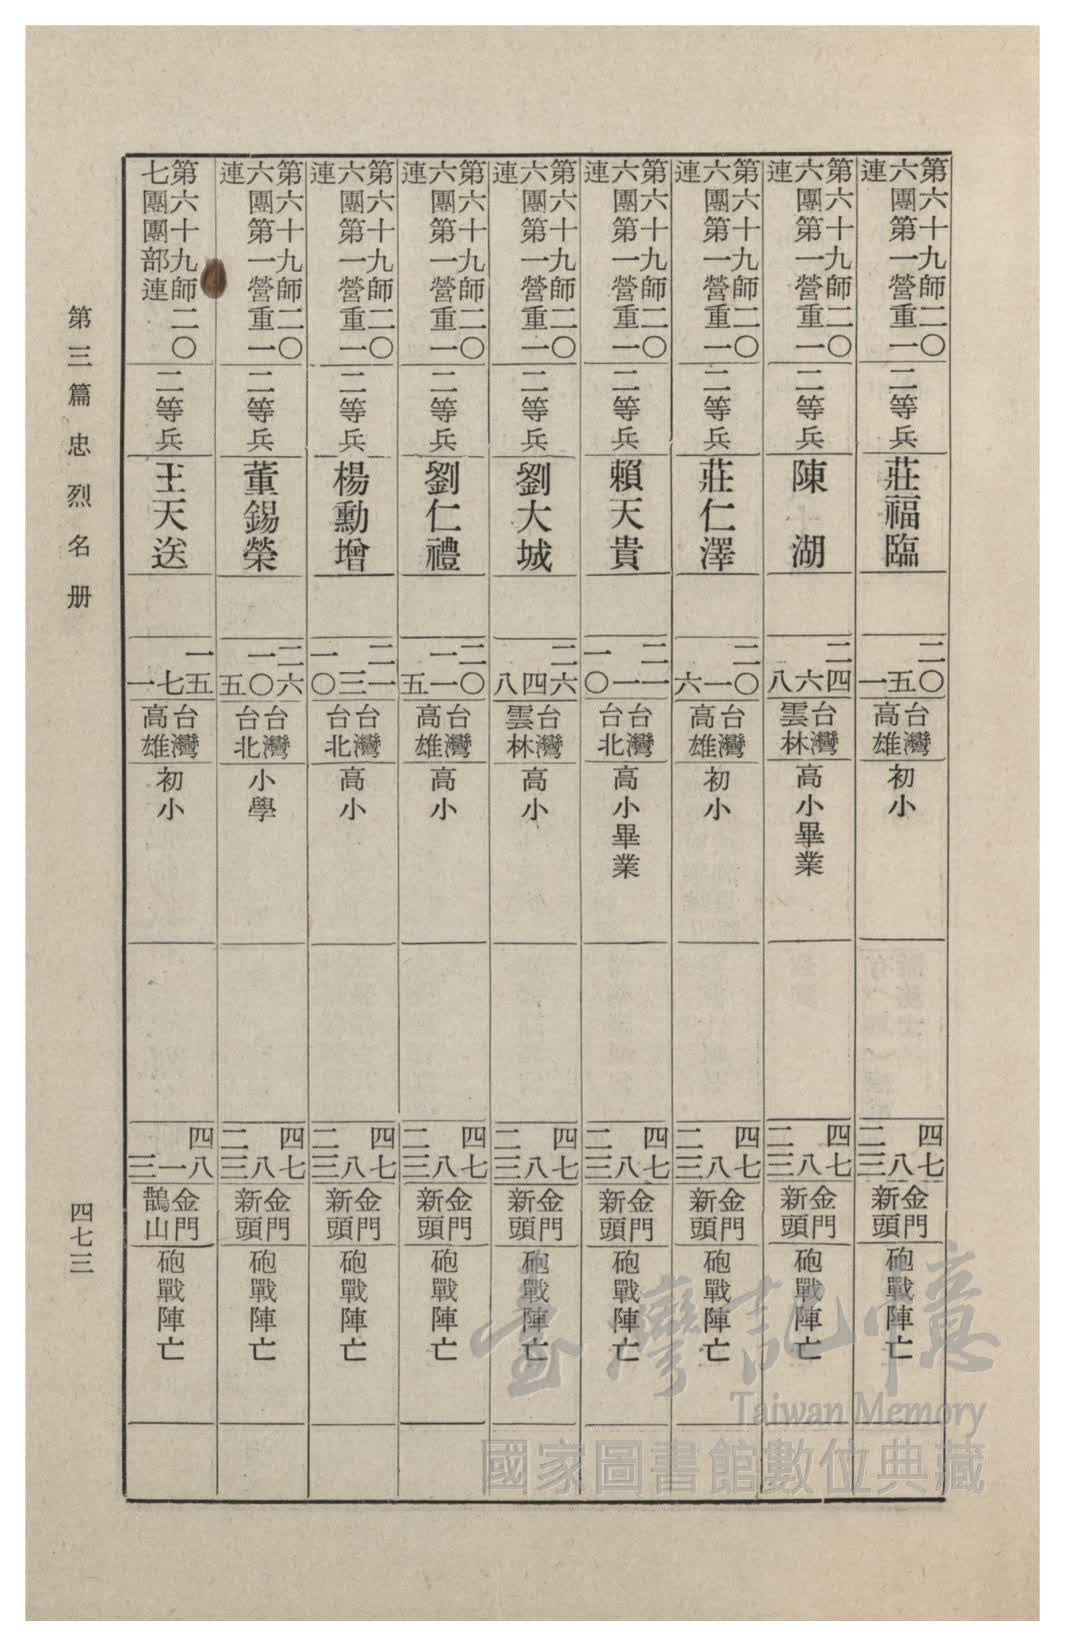 第六十九師二〇
六團第一營重一
連
二等兵
莊福臨
二〇
五
一
台灣
高雄
初小
四七
八
二三
金門
新頭
砲戰陣亡
第六十九師二〇
六團第一營重一
連
二等兵
陳湖
二四
六
八
台灣
雲林
高小畢業
四七
八
二三
金門
新頭
砲戰陣亡
第六十九師二〇
六團第一營重一
連
二等兵
莊仁澤
二〇
一
六
台灣
高雄
初小
四七
八
二三
金門
新頭
砲戰陣亡
第六十九師二〇
六團第一營重一
連
二等兵
賴天貴
二一
一
一〇
台灣
台北
高小畢業
四七
八
二三
金門
新頭
砲戰陣亡
第六十九師二〇
六團第一營重一
連
二等兵
劉大城
二六
四
八
台灣
雲林
高小
四七
八
二三
金門
新頭
砲戰陣亡
第六十九師二〇
六團第一營重一
連
二等兵
劉仁禮
二〇
一一
五
台灣
高雄
高小
四七
八
二三
金門
新頭
砲戰陣亡
第六十九師二〇
六團第一營重一
連
二等兵
楊勳增
二一
三
一〇
台灣
台北
高小
四七
八
二三
金門
新頭
砲戰陣亡
第六十九師二〇
六團第一營重一
連
二等兵
董錫榮
二六
一〇
五
台灣
台北
小學
四七
八
二三
金門
新頭
砲戰陣亡
第六十九師二〇
七團團部連
二等兵
王天送
一五
七
一
台灣
高雄
初小
四八
一
三
金門
鵲山
砲戰陣亡
第三篇 忠烈名册
四七三
臺灣記憶
Taiwan Memory
國家圖書館數位典藏